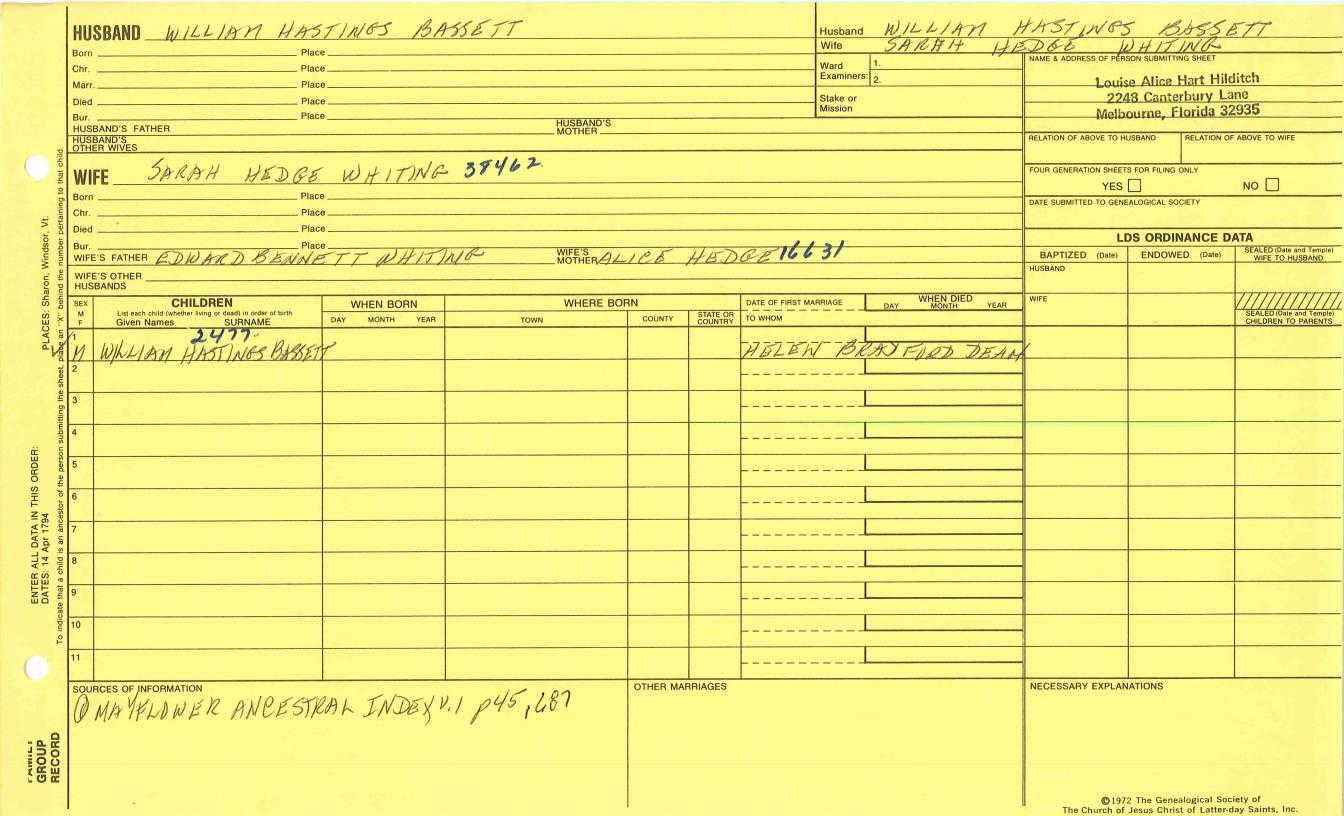 HUSBAND WILLIAM HASTINGS BASSETT
Born Place
Chr. Place
Marr. Place
Died Place
Bur. Place
HUSBAND'S FATHER HUSBAND'S MOTHER
HUSBAND'S OTHER WIVES
WIFE SARAH HEDGE WHITING 38462
Born Place
Chr. Place
Died Place
Bur. Place
WIFE'S FATHER EDWARD BENNETT WHITING WIFE'S MOTHER ALICE HEDGE 16631
WIFE'S OTHER HUSBANDS
Husband WILLIAM HASTINGS BASSETT
Wife SARAH HEDGE WHITING
Ward Examiners: 1.
2.
Stake or Mission
NAME & ADDRESS OF PERSON SUBMITTING SHEET
Louise Alice Hart Hilditch
2248 Canterbury Lane
Melbourne, Florida 32935
RELATION OF ABOVE TO HUSBAND RELATION OF ABOVE TO WIFE
FOUR GENERATION SHEETS FOR FILING ONLY
YES NO
DATE SUBMITTED TO GENEALOGICAL SOCIETY
LDS ORDINANCE DATA
BAPTIZED (Date) ENDOWED (Date) SEALED (Date and Temple) WIFE TO HUSBAND
HUSBAND
WIFE
SEALED (Date and Temple) CHILDREN TO PARENTS
SEX M F
CHILDREN
List each child (whether living or dead) in order of birth
Given Names SURNAME
WHEN BORN
DAY MONTH YEAR
WHERE BORN
TOWN COUNTY STATE OR COUNTRY
DATE OF FIRST MARRIAGE
TO WHOM
WHEN DIED
DAY MONTH YEAR
1 2477
M WILLIAM HASTINGS BASSETT HELEN BRADFORD DEAN
2
3
4
5
6
7
8
9
10
11
SOURCES OF INFORMATION
① MAYFLOWER ANCESTRAL INDEX, V.1 p45, 687
OTHER MARRIAGES
NECESSARY EXPLANATIONS
©1972 The Genealogical Society of
The Church of Jesus Christ of Latter-day Saints, Inc.
PLACES: Sharon, Windsor, Vt.
ENTER ALL DATA IN THIS ORDER:
DATES: 14 Apr 1794
To indicate that a child is an ancestor of the person submitting the sheet, place an "X" behind the number pertaining to that child.
FAMILY
GROUP
RECORD